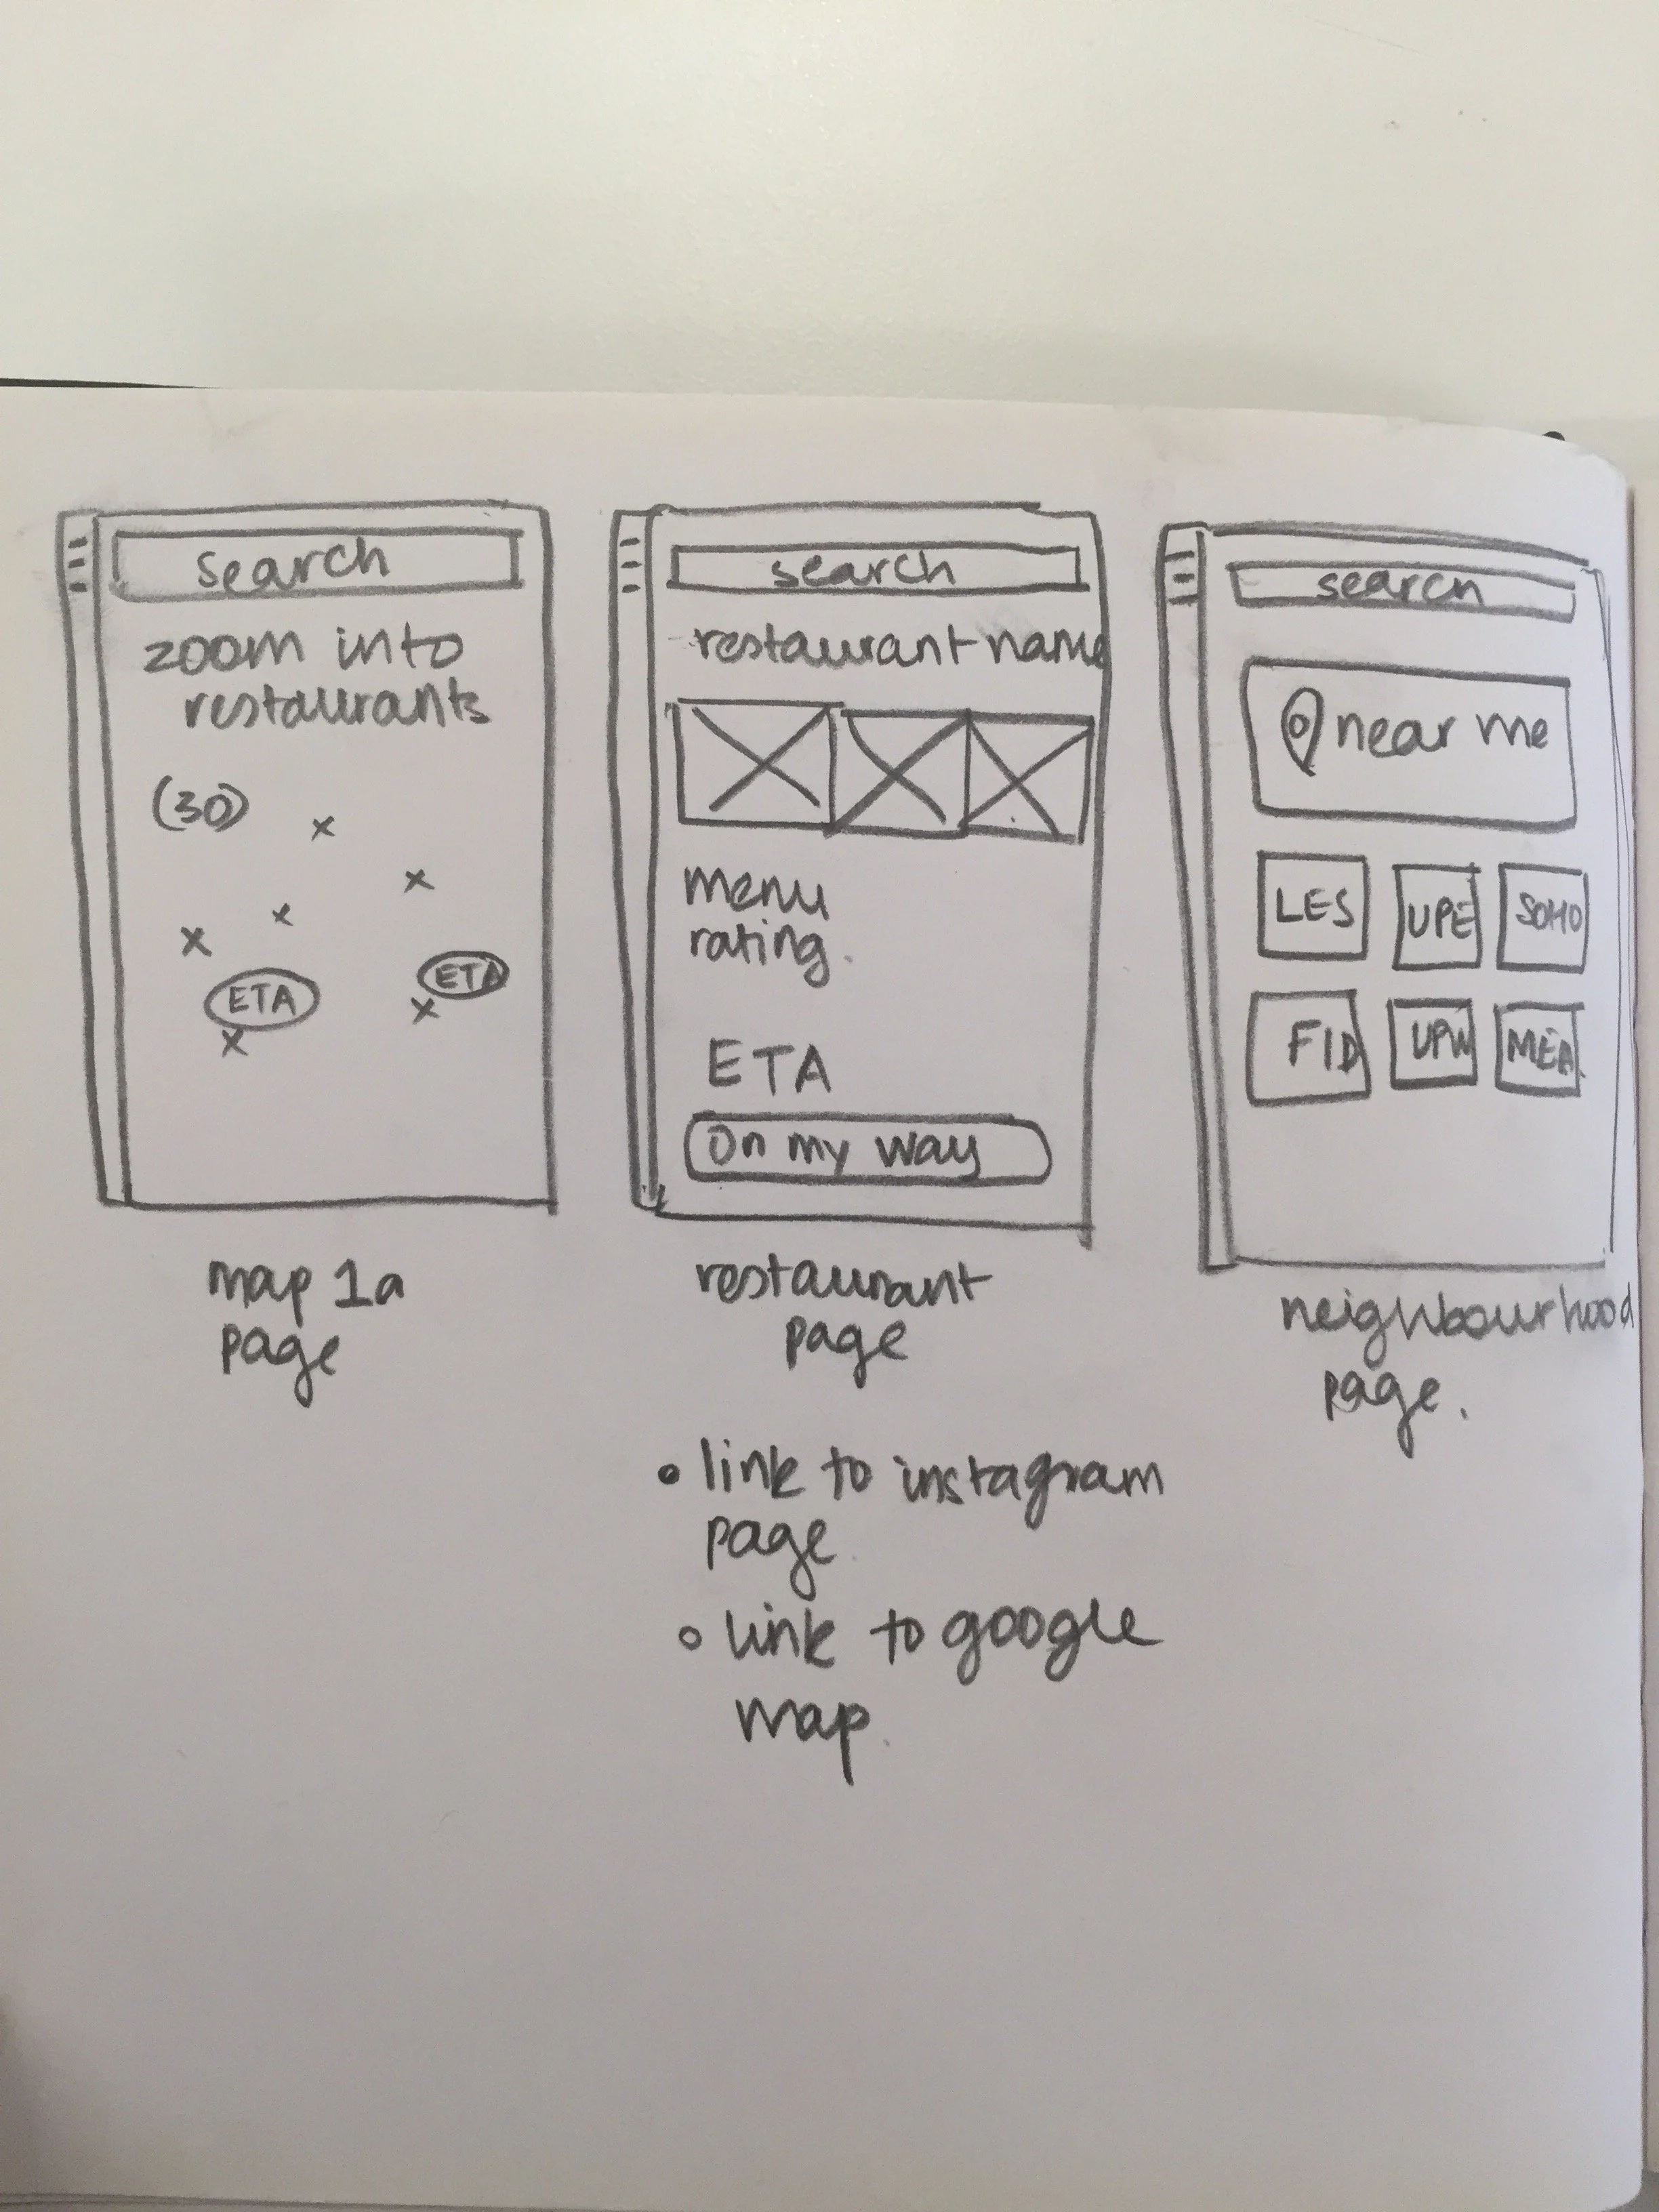 search
zoom into
restaurants
(30)
ETA
ETA
map 1a
page
search
restaurant name
menu
rating.
ETA
On my way
restaurant
page
• link to instagram
page.
• link to google
map.
search
near me
LES UPE SOHO
FID UPW MEA
neighbourhood
page.